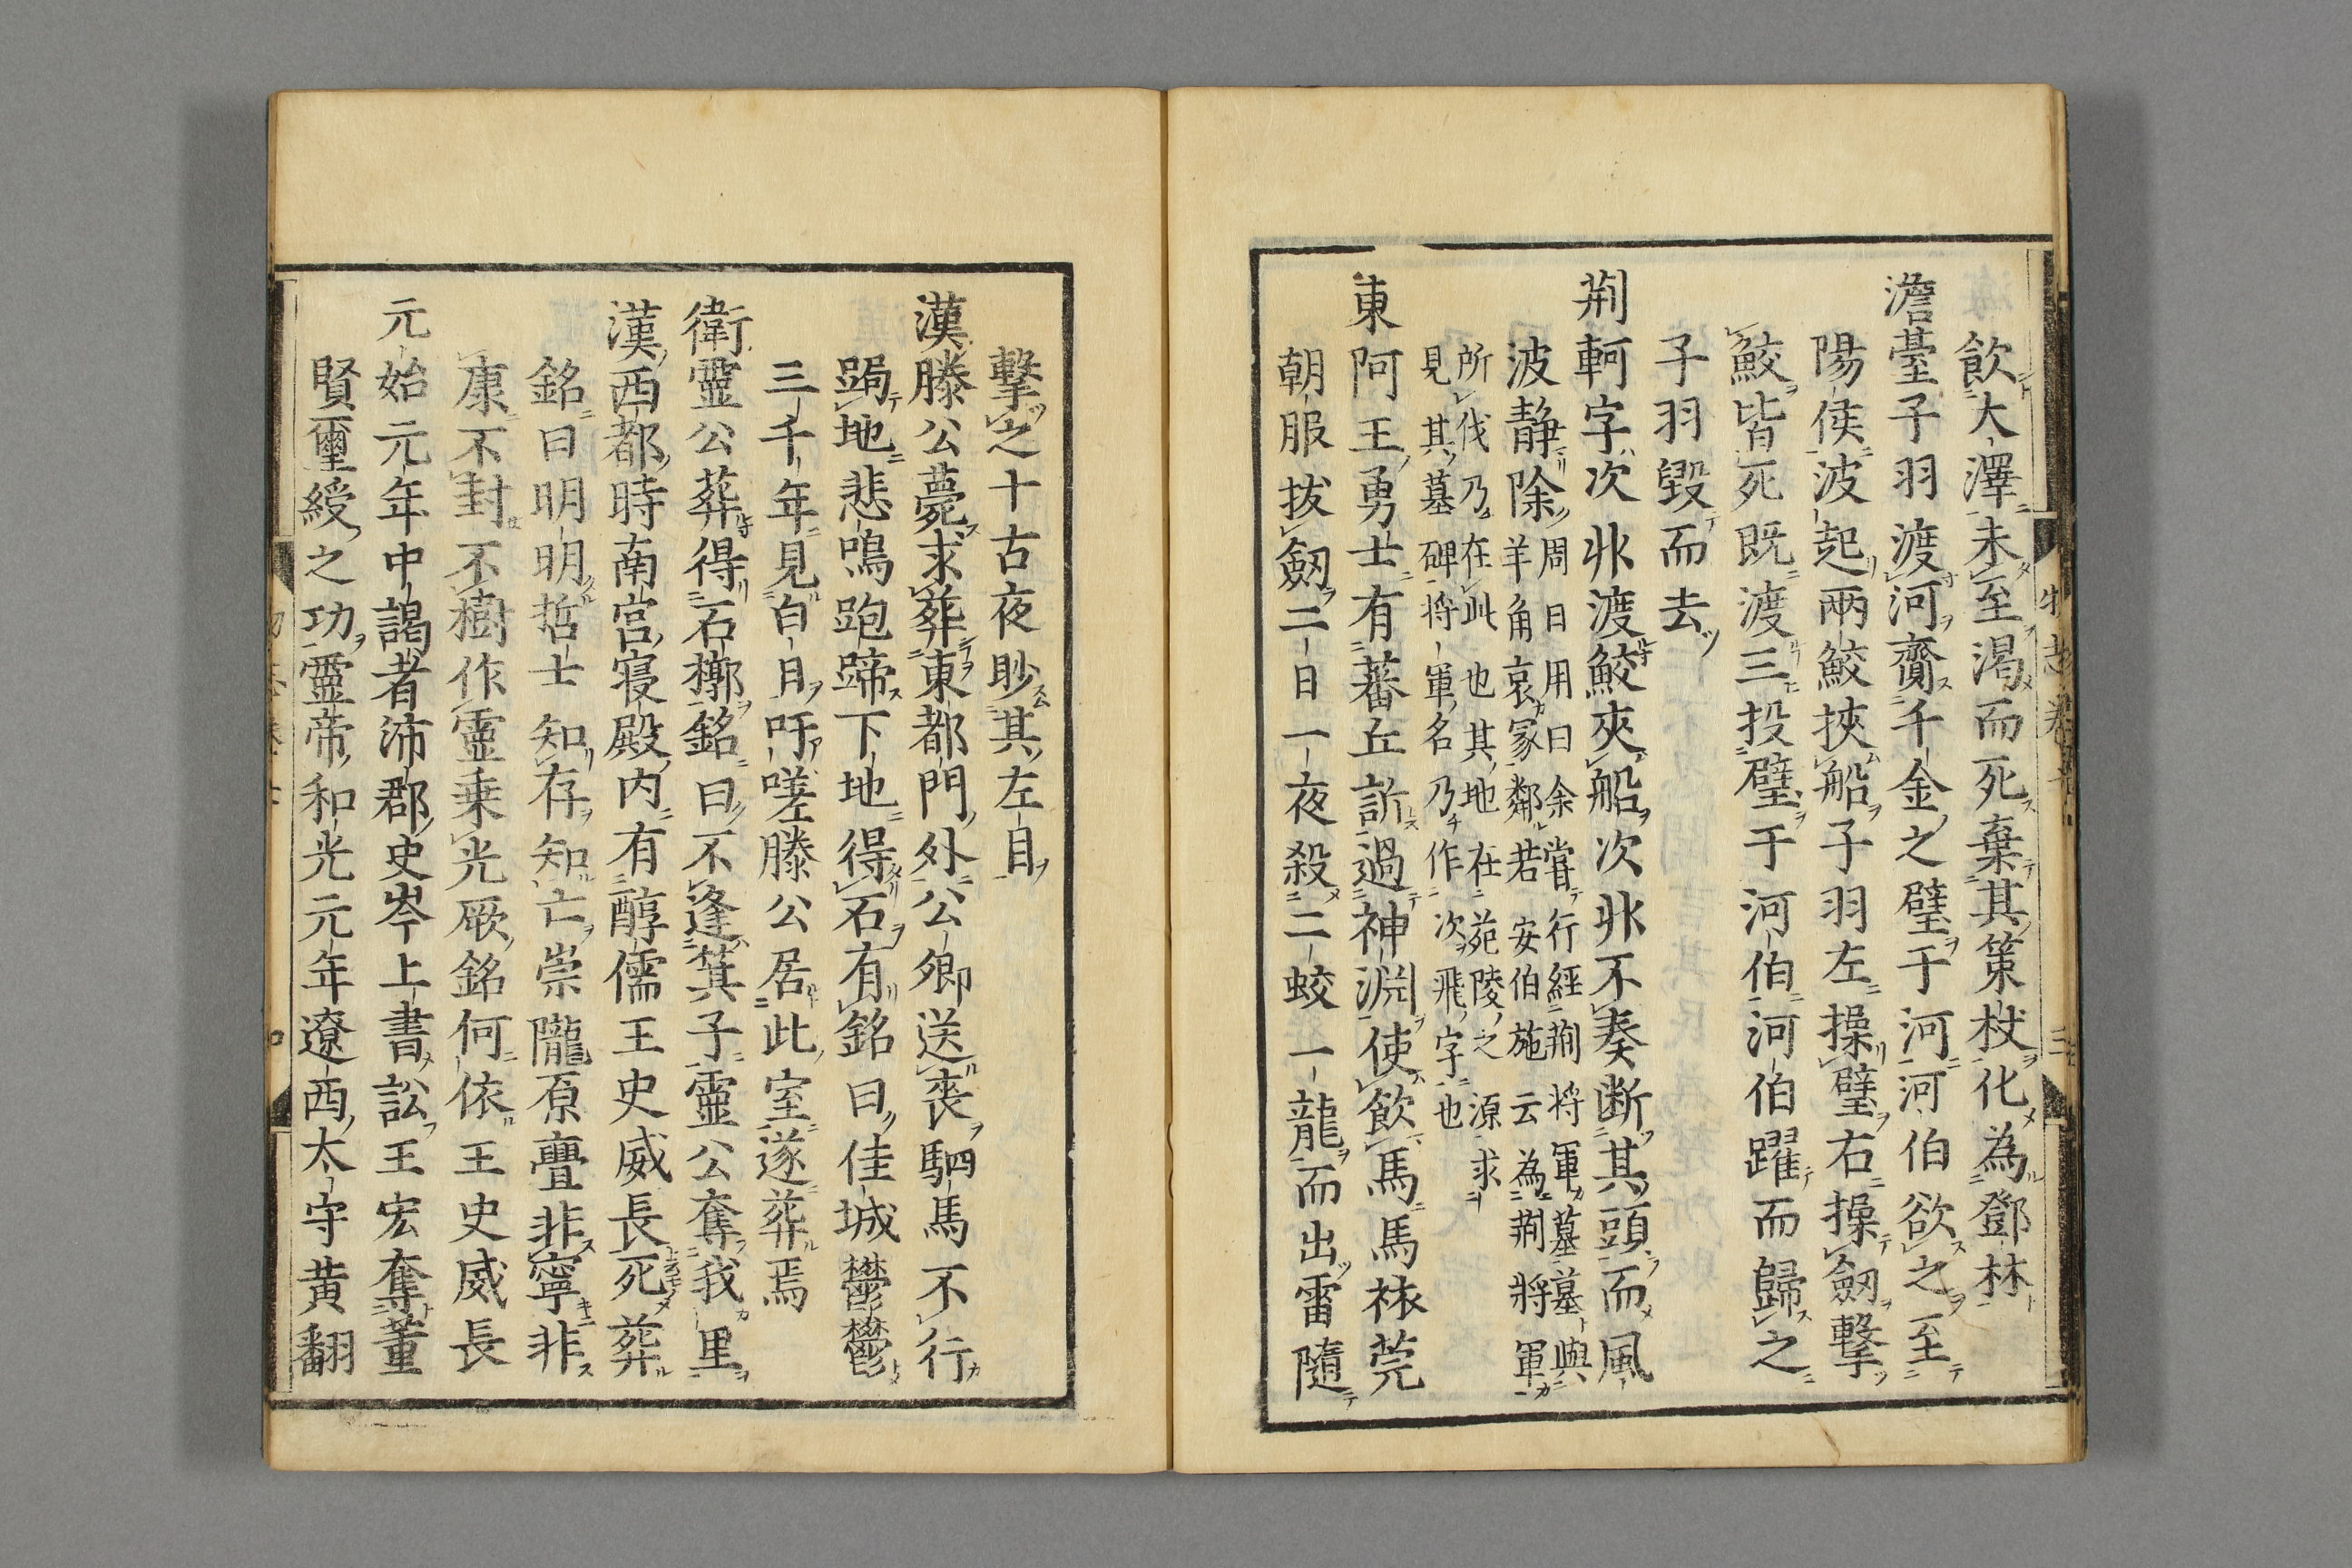 飲大澤未至渇而死棄其策杖化為鄧林
澹臺子羽渡河齎千金之璧于河河伯欲之至
陽侯波起兩鮫挾船子羽左操璧右操劔撃
鮫皆死既渡三投璧于河伯河伯躍而歸之
子羽毀而去
荆軻字次非渡鮫夾船次非不奏断其頭而風
波静除
周日用曰余嘗行經荆将軍墓墓與
羊角哀冢鄰若安伯施云為荆將軍
所伐乃在此也其地在苑陵之源求
見其墓碑将軍名乃作次飛字也
東阿王勇士有蕃丘訢過神淵使飲馬馬𥘵莞
朝服抜劔二日一夜殺二蛟一龍而出雷隨
撃之十古夜眇其左目
漢滕公薨求葬東都門外公卿送喪駟馬不行
跼地悲鳴跑蹄下地得石有銘曰佳城鬱鬱
三千年見白日吁嗟滕公居此室遂葬焉
衛靈公葬得石槨銘曰不逢箕子靈公奪我里
漢西都時南宮寝殿内有醇儒王史威長死葬
銘曰明明哲士知存知亡崇隴原亶非寧非
康不封不樹作靈乗光厥銘何依王史威長
元始元年中謁者沛郡史岑上書訟王宏奪董
賢璽綬之功靈帝和光元年遼西太守黄翻